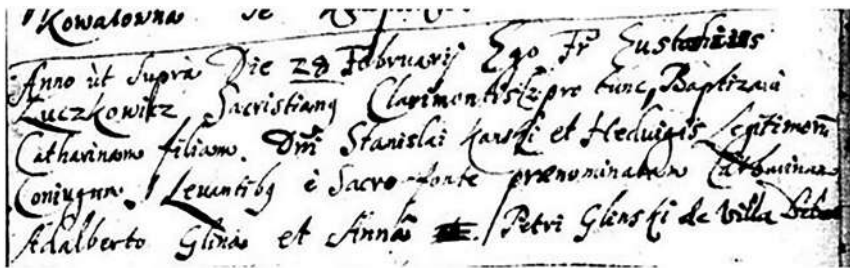 Kowalowna de
Anno ut Supra Die 28 Februarij Ego Fr Eustachius
Luczkowicz Sacristianus Clarimontis pro tunc Baptizavi
Catharinam filiam Dni Stanislai Karski et Hedvigis Legitimorū
Coniugum Levantibꝫ è Sacro fonte prænominatam Catharinam
Adalberto Glina et Anna Petri Glinski de Villa